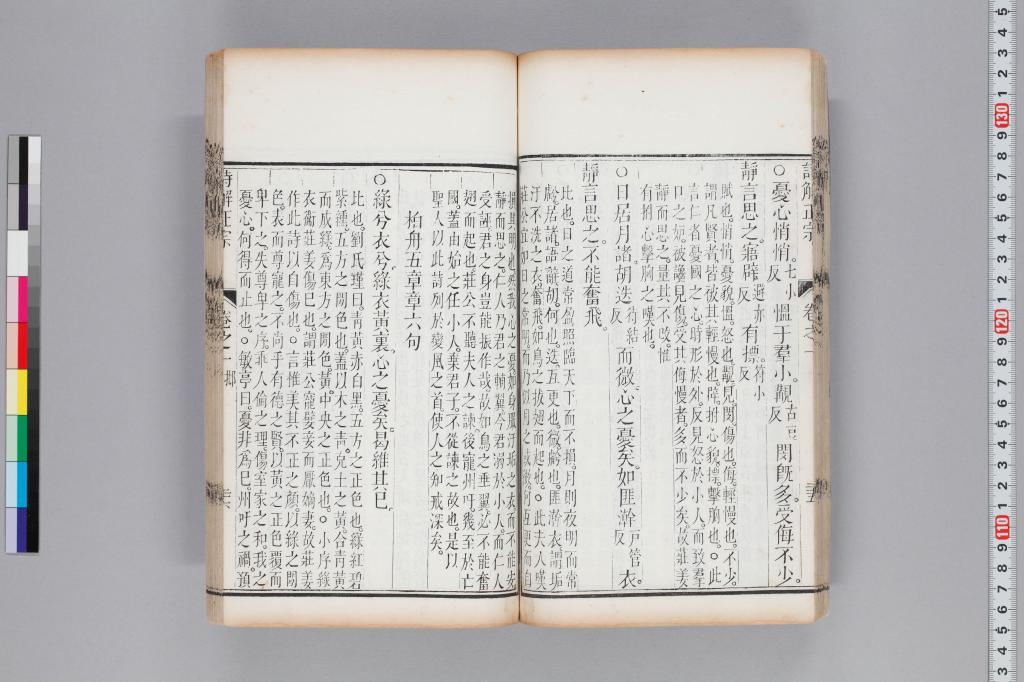 詩解正宗 卷之一 三五
○憂心悄悄七小反慍于羣小覯古豆反閔旣多受侮不少
靜言思之寤辟避亦反有摽符小反
賦也悄悄憂貌慍怒也覯見閔傷也侮輕慢也不少
謂凡賢者皆彼其輕慢也辟拊心貌摽擊胸也○此
言仁者憂國之心時形於外反見怒於小人而致羣
口之短被讒見傷受其侮慢者多而不少矣故莊姜
靜而思之量其不改惟
有拊心擊胸之嘆也
○日居月諸胡迭待結反而微心之憂矣如匪澣戸管反衣
靜言思之不能奮飛
比也日之道常盈照臨天下而不損月則夜明而常
虧居諸語辭胡何也迭互更也微虧也匪澣衣謂垢
汙不洗之衣奮飛如鳥之拔翅而起也○此夫人嘆
莊公宜如日之常明而乃似月之或微何互更而自
損其明也然我心之憂如身服汙垢之衣而不能安
靜而思之仁人乃君之輔翼今君溺於小人而仁人
受誣君之身豈能振作哉故如鳥之垂翼必不能奮
翅而起也莊公不聽夫人之諫後寵州吁幾至於亡
國蓋由始之任小人棄君子不從諫之故也是以
聖人以此詩列於變風之首使人之知戒深矣
柏舟五章章六句
○綠兮衣兮綠衣黃裏心之憂矣曷維其已
比也劉氏瑾曰靑黃赤白黑五方之正色也綠紅碧
紫纁五方之閒色也蓋以木之靑克土之黃合靑黃
而成綠爲東方之閒色黃中央之正色也○小序綠
衣衞莊姜傷已也謂莊公寵嬖妾而厭嫡妻故莊姜
作此詩以自傷也○言惟美其不正之顏以綠之閒
色表而尊寵之不尚乎有德之賢以黃之正色覆而
卑下之失尊卑之序乖人倫之理傷室家之和我之
憂心何得而止也○敏亭曰憂非爲已州吁之禍預
詩解正宗 卷之一 邶 三六